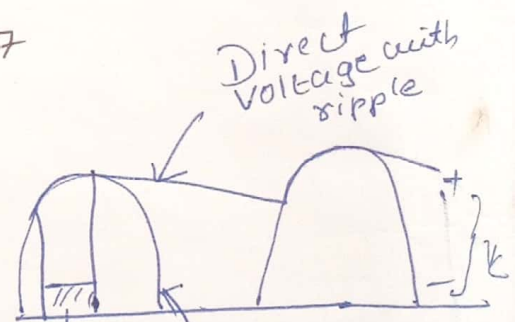 7
Direct
voltage with
ripple
+
-